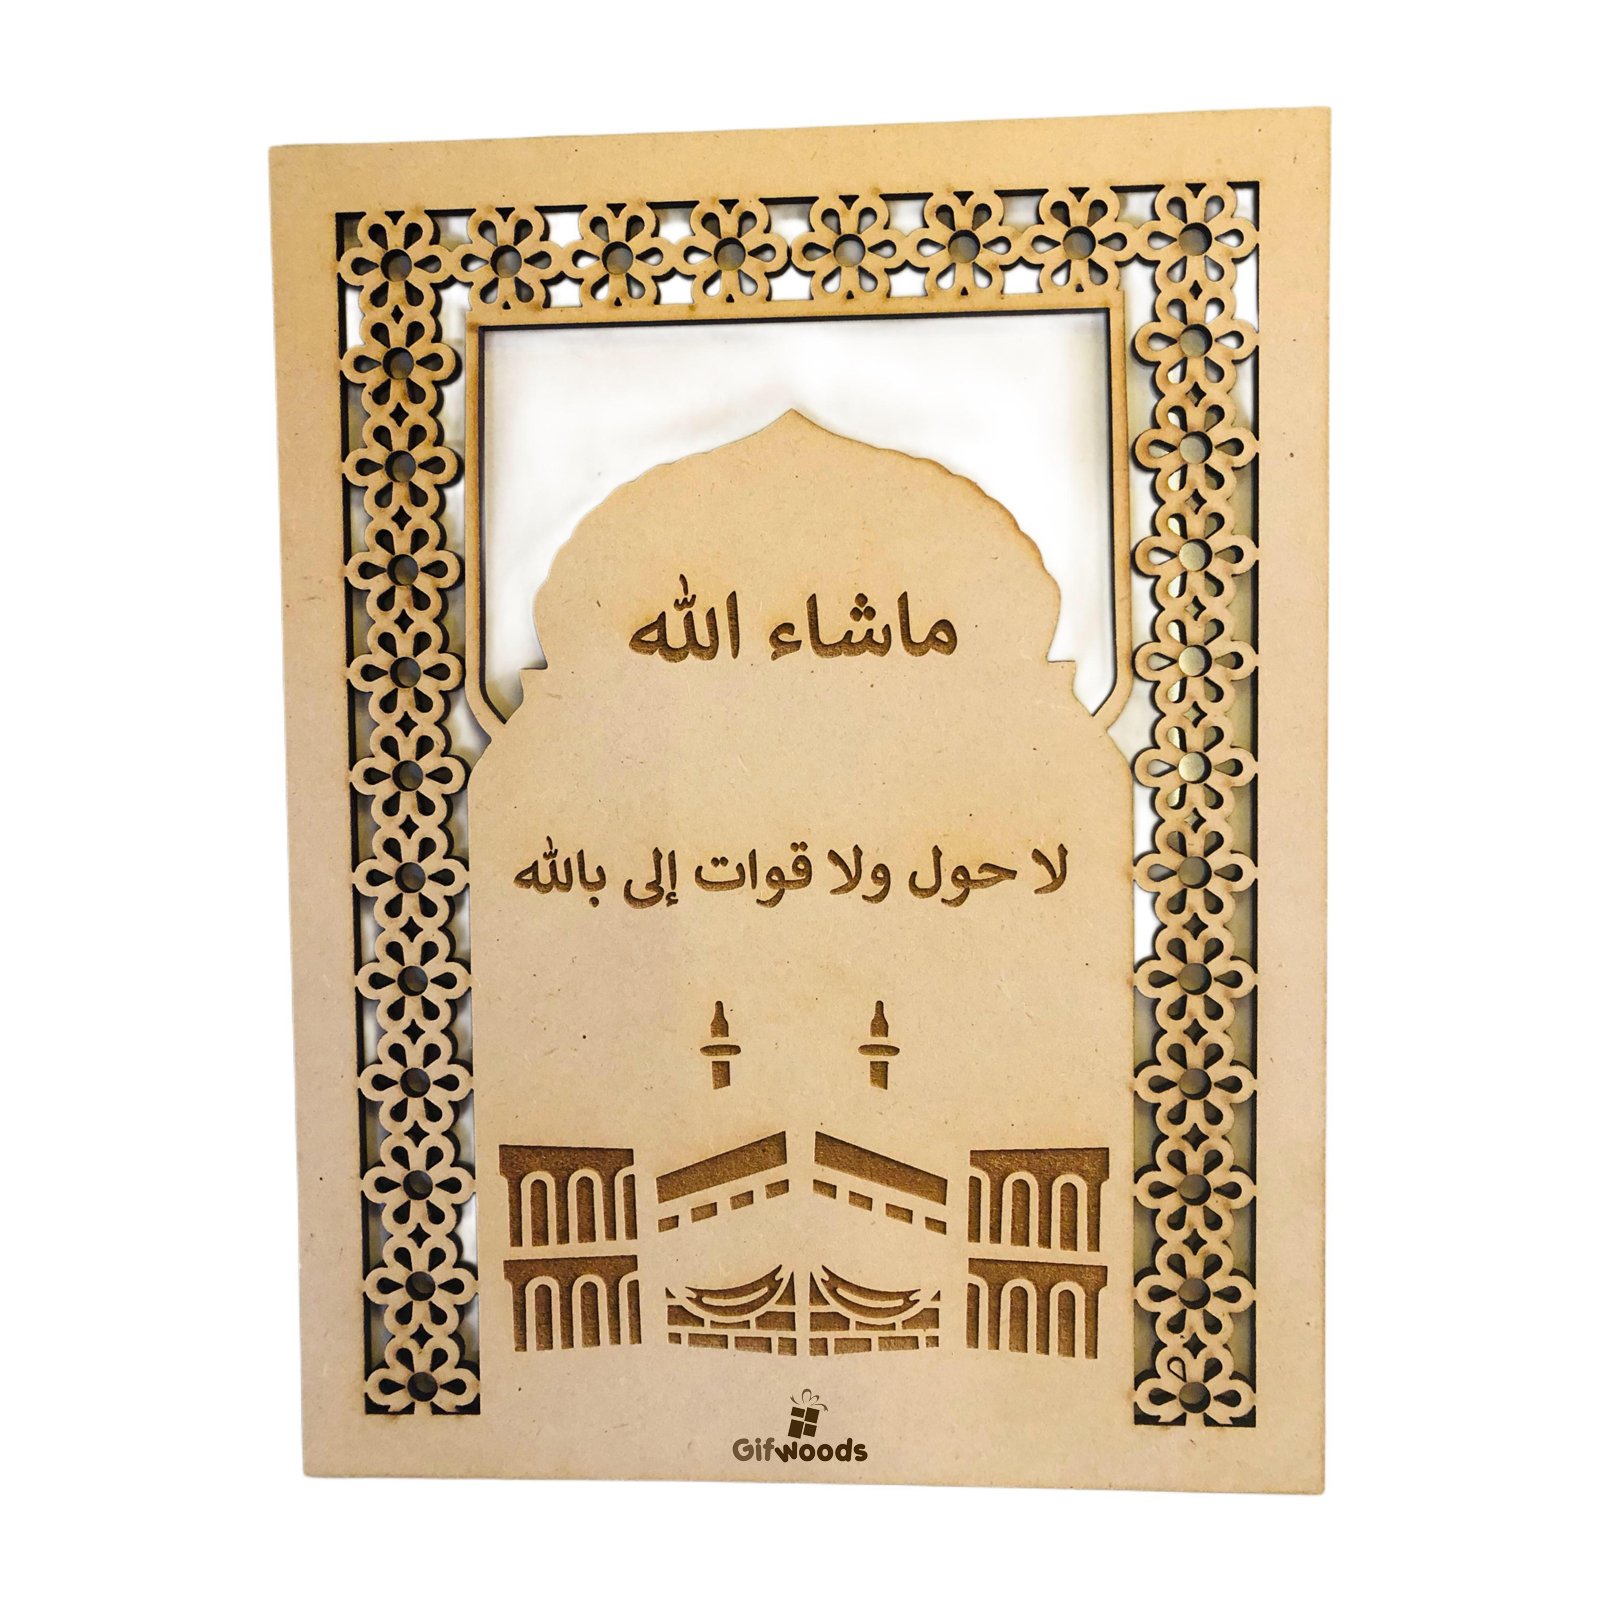 ماشاء الله
لا حول ولا قوات إلى بالله
Gifwoods